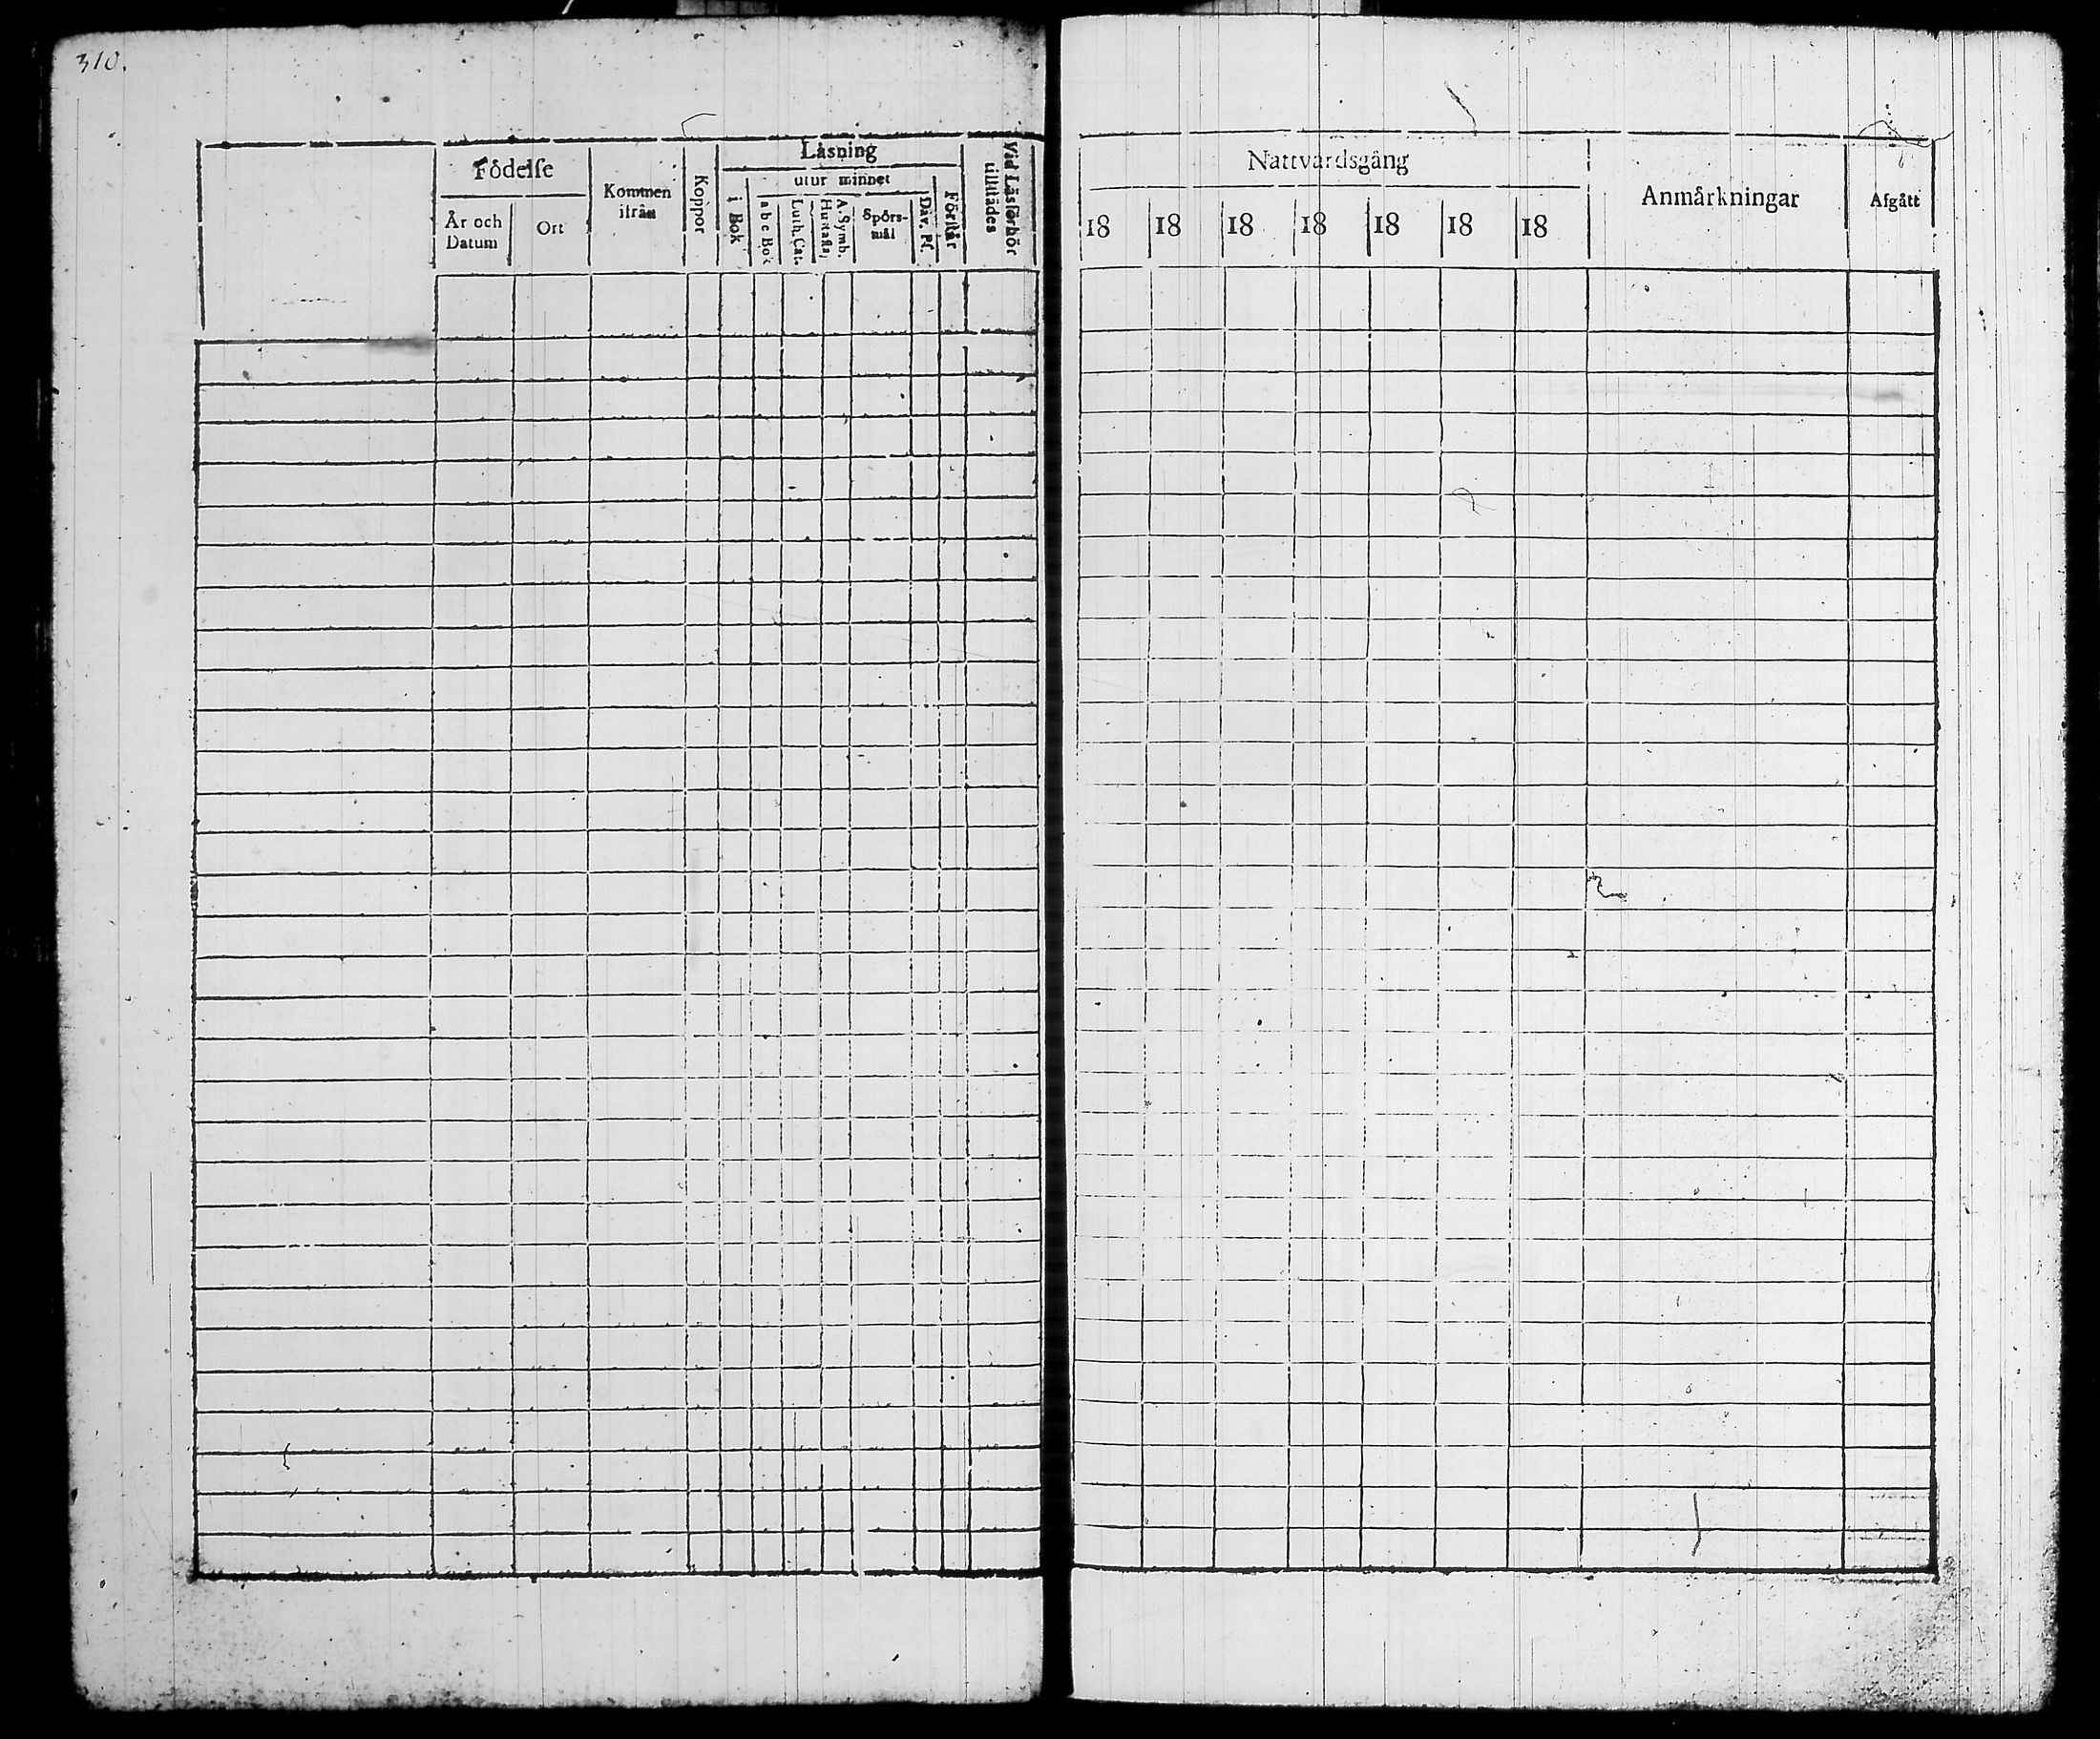 310.
Födelse
År och Datum
Ort
Kommen ifrån
Koppor
Läsning
i Bok
utur minnet
a b c Bok
Luth. Cat.
Hustafla,
A. Symb.
Spörs-
mål
Dav. Ps.
Förstår
Vid Läsförhör
tillstädes
Nattvardsgång
18 18 18 18 18 18 18
Anmårkningar
Afgått